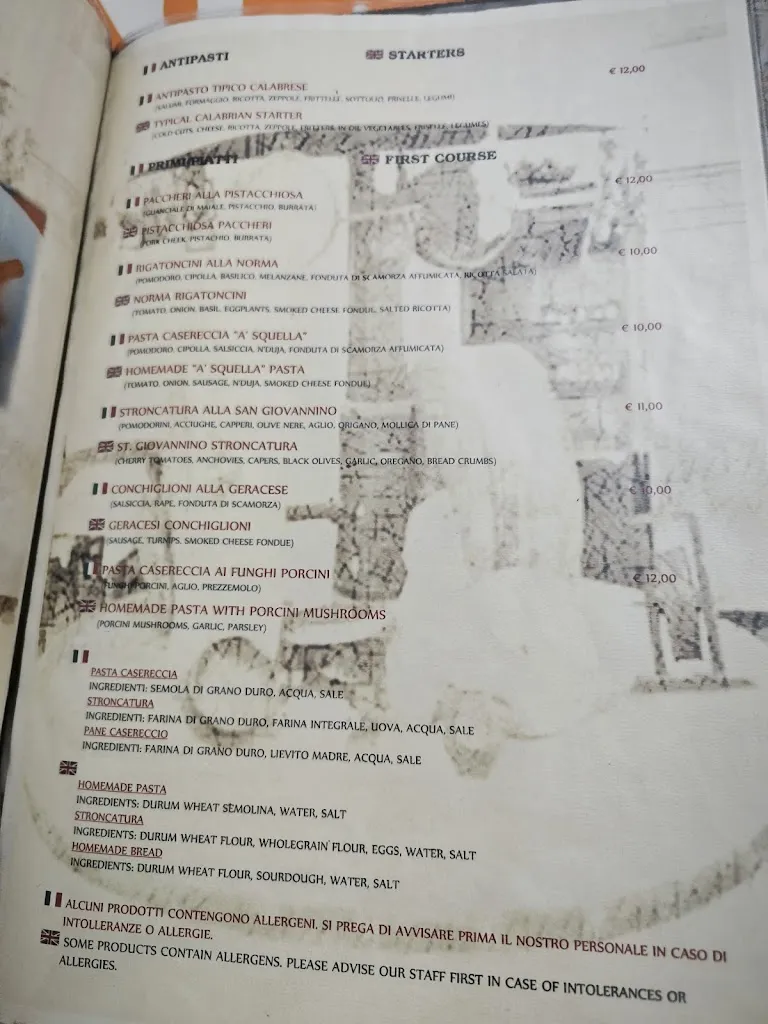 ANTIPASTI STARTERS
ANTIPASTO TIPICO CALABRESE € 12,00
(SALUMI, FORMAGGIO, RICOTTA, ZEPPOLE, FRITTELLE, SOTTOLIO, FRISELLE, LEGUMI)
TYPICAL CALABRIAN STARTER
(COLD CUTS, CHEESE, RICOTTA, ZEPPOLE, FRITTERS, IN OIL VEGETABLES, FRISELLE, LEGUMES)
PRIMI PIATTI FIRST COURSE
PACCHERI ALLA PISTACCHIOSA € 12,00
(GUANCIALE DI MAIALE, PISTACCHIO, BURRATA)
PISTACCHIOSA PACCHERI
(PORK CHEEK, PISTACHIO, BURRATA)
RIGATONCINI ALLA NORMA € 10,00
(POMODORO, CIPOLLA, BASILICO, MELANZANE, FONDUTA DI SCAMORZA AFFUMICATA, RICOTTA SALATA)
NORMA RIGATONCINI
(TOMATO, ONION, BASIL, EGGPLANTS, SMOKED CHEESE FONDUE, SALTED RICOTTA)
PASTA CASERECCIA "A' SQUELLA" € 10,00
(POMODORO, CIPOLLA, SALSICCIA, N'DUJA, FONDUTA DI SCAMORZA AFFUMICATA)
HOMEMADE "A' SQUELLA" PASTA
(TOMATO, ONION, SAUSAGE, N'DUJA, SMOKED CHEESE FONDUE)
STRONCATURA ALLA SAN GIOVANNINO € 11,00
(POMODORINI, ACCIUGHE, CAPPERI, OLIVE NERE, AGLIO, ORIGANO, MOLLICA DI PANE)
ST. GIOVANNINO STRONCATURA
(CHERRY TOMATOES, ANCHOVIES, CAPERS, BLACK OLIVES, GARLIC, OREGANO, BREAD CRUMBS)
CONCHIGLIONI ALLA GERACESE € 10,00
(SALSICCIA, RAPE, FONDUTA DI SCAMORZA)
GERACESI CONCHIGLIONI
(SAUSAGE, TURNIPS, SMOKED CHEESE FONDUE)
PASTA CASERECCIA AI FUNGHI PORCINI € 12,00
(FUNGHI PORCINI, AGLIO, PREZZEMOLO)
HOMEMADE PASTA WITH PORCINI MUSHROOMS
(PORCINI MUSHROOMS, GARLIC, PARSLEY)
PASTA CASERECCIA
INGREDIENTI: SEMOLA DI GRANO DURO, ACQUA, SALE
STRONCATURA
INGREDIENTI: FARINA DI GRANO DURO, FARINA INTEGRALE, UOVA, ACQUA, SALE
PANE CASERECCIO
INGREDIENTI: FARINA DI GRANO DURO, LIEVITO MADRE, ACQUA, SALE
HOMEMADE PASTA
INGREDIENTS: DURUM WHEAT SEMOLINA, WATER, SALT
STRONCATURA
INGREDIENTS: DURUM WHEAT FLOUR, WHOLEGRAIN FLOUR, EGGS, WATER, SALT
HOMEMADE BREAD
INGREDIENTS: DURUM WHEAT FLOUR, SOURDOUGH, WATER, SALT
ALCUNI PRODOTTI CONTENGONO ALLERGENI. SI PREGA DI AVVISARE PRIMA IL NOSTRO PERSONALE IN CASO DI
INTOLLERANZE O ALLERGIE.
SOME PRODUCTS CONTAIN ALLERGENS. PLEASE ADVISE OUR STAFF FIRST IN CASE OF INTOLERANCES OR
ALLERGIES.